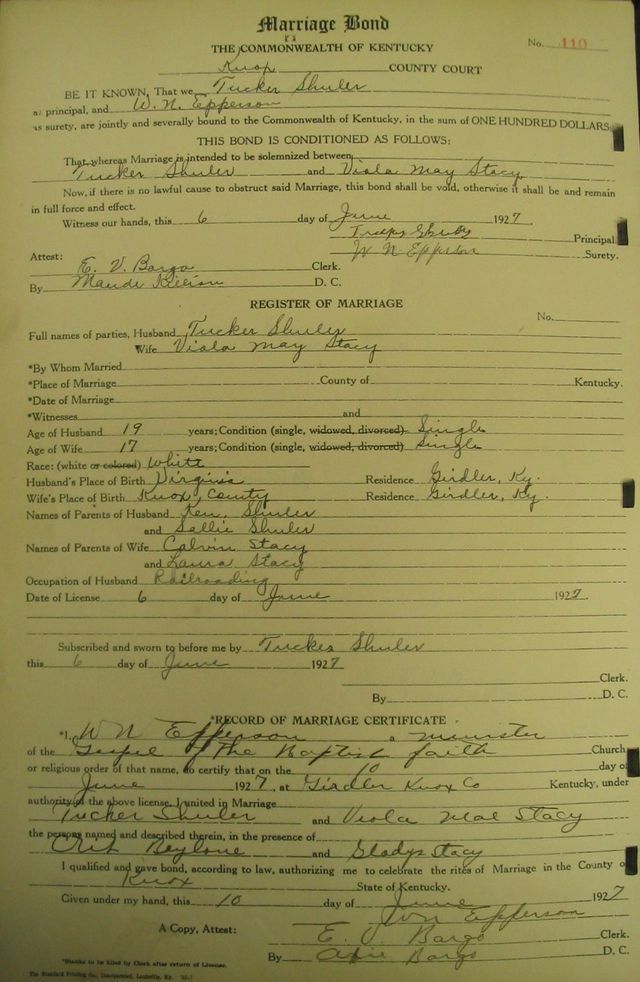 Marriage Bond
THE COMMONWEALTH OF KENTUCKY No. 110
Knox COUNTY COURT
BE IT KNOWN, That we Tucker Shuler
as principal, and W. N. Epperson
as surety, are jointly and severally bound to the Commonwealth of Kentucky, in the sum of ONE HUNDRED DOLLARS
THIS BOND IS CONDITIONED AS FOLLOWS:
That whereas Marriage is intended to be solemnized between
Tucker Shuler and Viola May Stacy
Now, if there is no lawful cause to obstruct said Marriage, this bond shall be void, otherwise it shall be and remain
in full force and effect.
Witness our hands, this 6 day of June 1927
Principal
W N Epperson Surety.
Attest:
E. V. Bargo Clerk.
By Maude D. C.
REGISTER OF MARRIAGE
No.
Full names of parties, Husband Tucker Shuler
Wife Viola May Stacy
*By Whom Married
*Place of Marriage County of Kentucky.
*Date of Marriage
*Witnesses and
Age of Husband 19 years; Condition (single, widowed, divorced) Single
Age of Wife 17 years; Condition (single, widowed, divorced) Single
Race: (white or colored) White
Husband's Place of Birth Virginia Residence Girdler, Ky.
Wife's Place of Birth Knox County Residence Girdler, Ky.
Names of Parents of Husband Ken, Shuler
and Sallie Shuler
Names of Parents of Wife Calvin Stacy
and Laura Stacy
Occupation of Husband Railroading
Date of License 6 day of June 1927
Subscribed and sworn to before me by Tucker Shuler
this 6 day of June 1927
Clerk.
By D. C.
*RECORD OF MARRIAGE CERTIFICATE
*I, W N Epperson a minister
of the Gospel of The Baptist faith Church,
or religious order of that name, do certify that on the 10 day of
June 1927, at Girdler Knox Co Kentucky, under
authority of the above license, I united in Marriage
Tucker Shuler and Viola Mae Stacy
the persons named and described therein, in the presence of
and Gladys Stacy
I qualified and gave bond, according to law, authorizing me to celebrate the rites of Marriage in the County of
Knox State of Kentucky.
Given under my hand, this 10 day of June 1927
Wm Epperson
A Copy, Attest: E. V. Bargo Clerk.
By Bargo D. C.
*Blanks to be filled by Clerk after return of License.
The Standard Printing Co., Incorporated, Louisville, Ky.